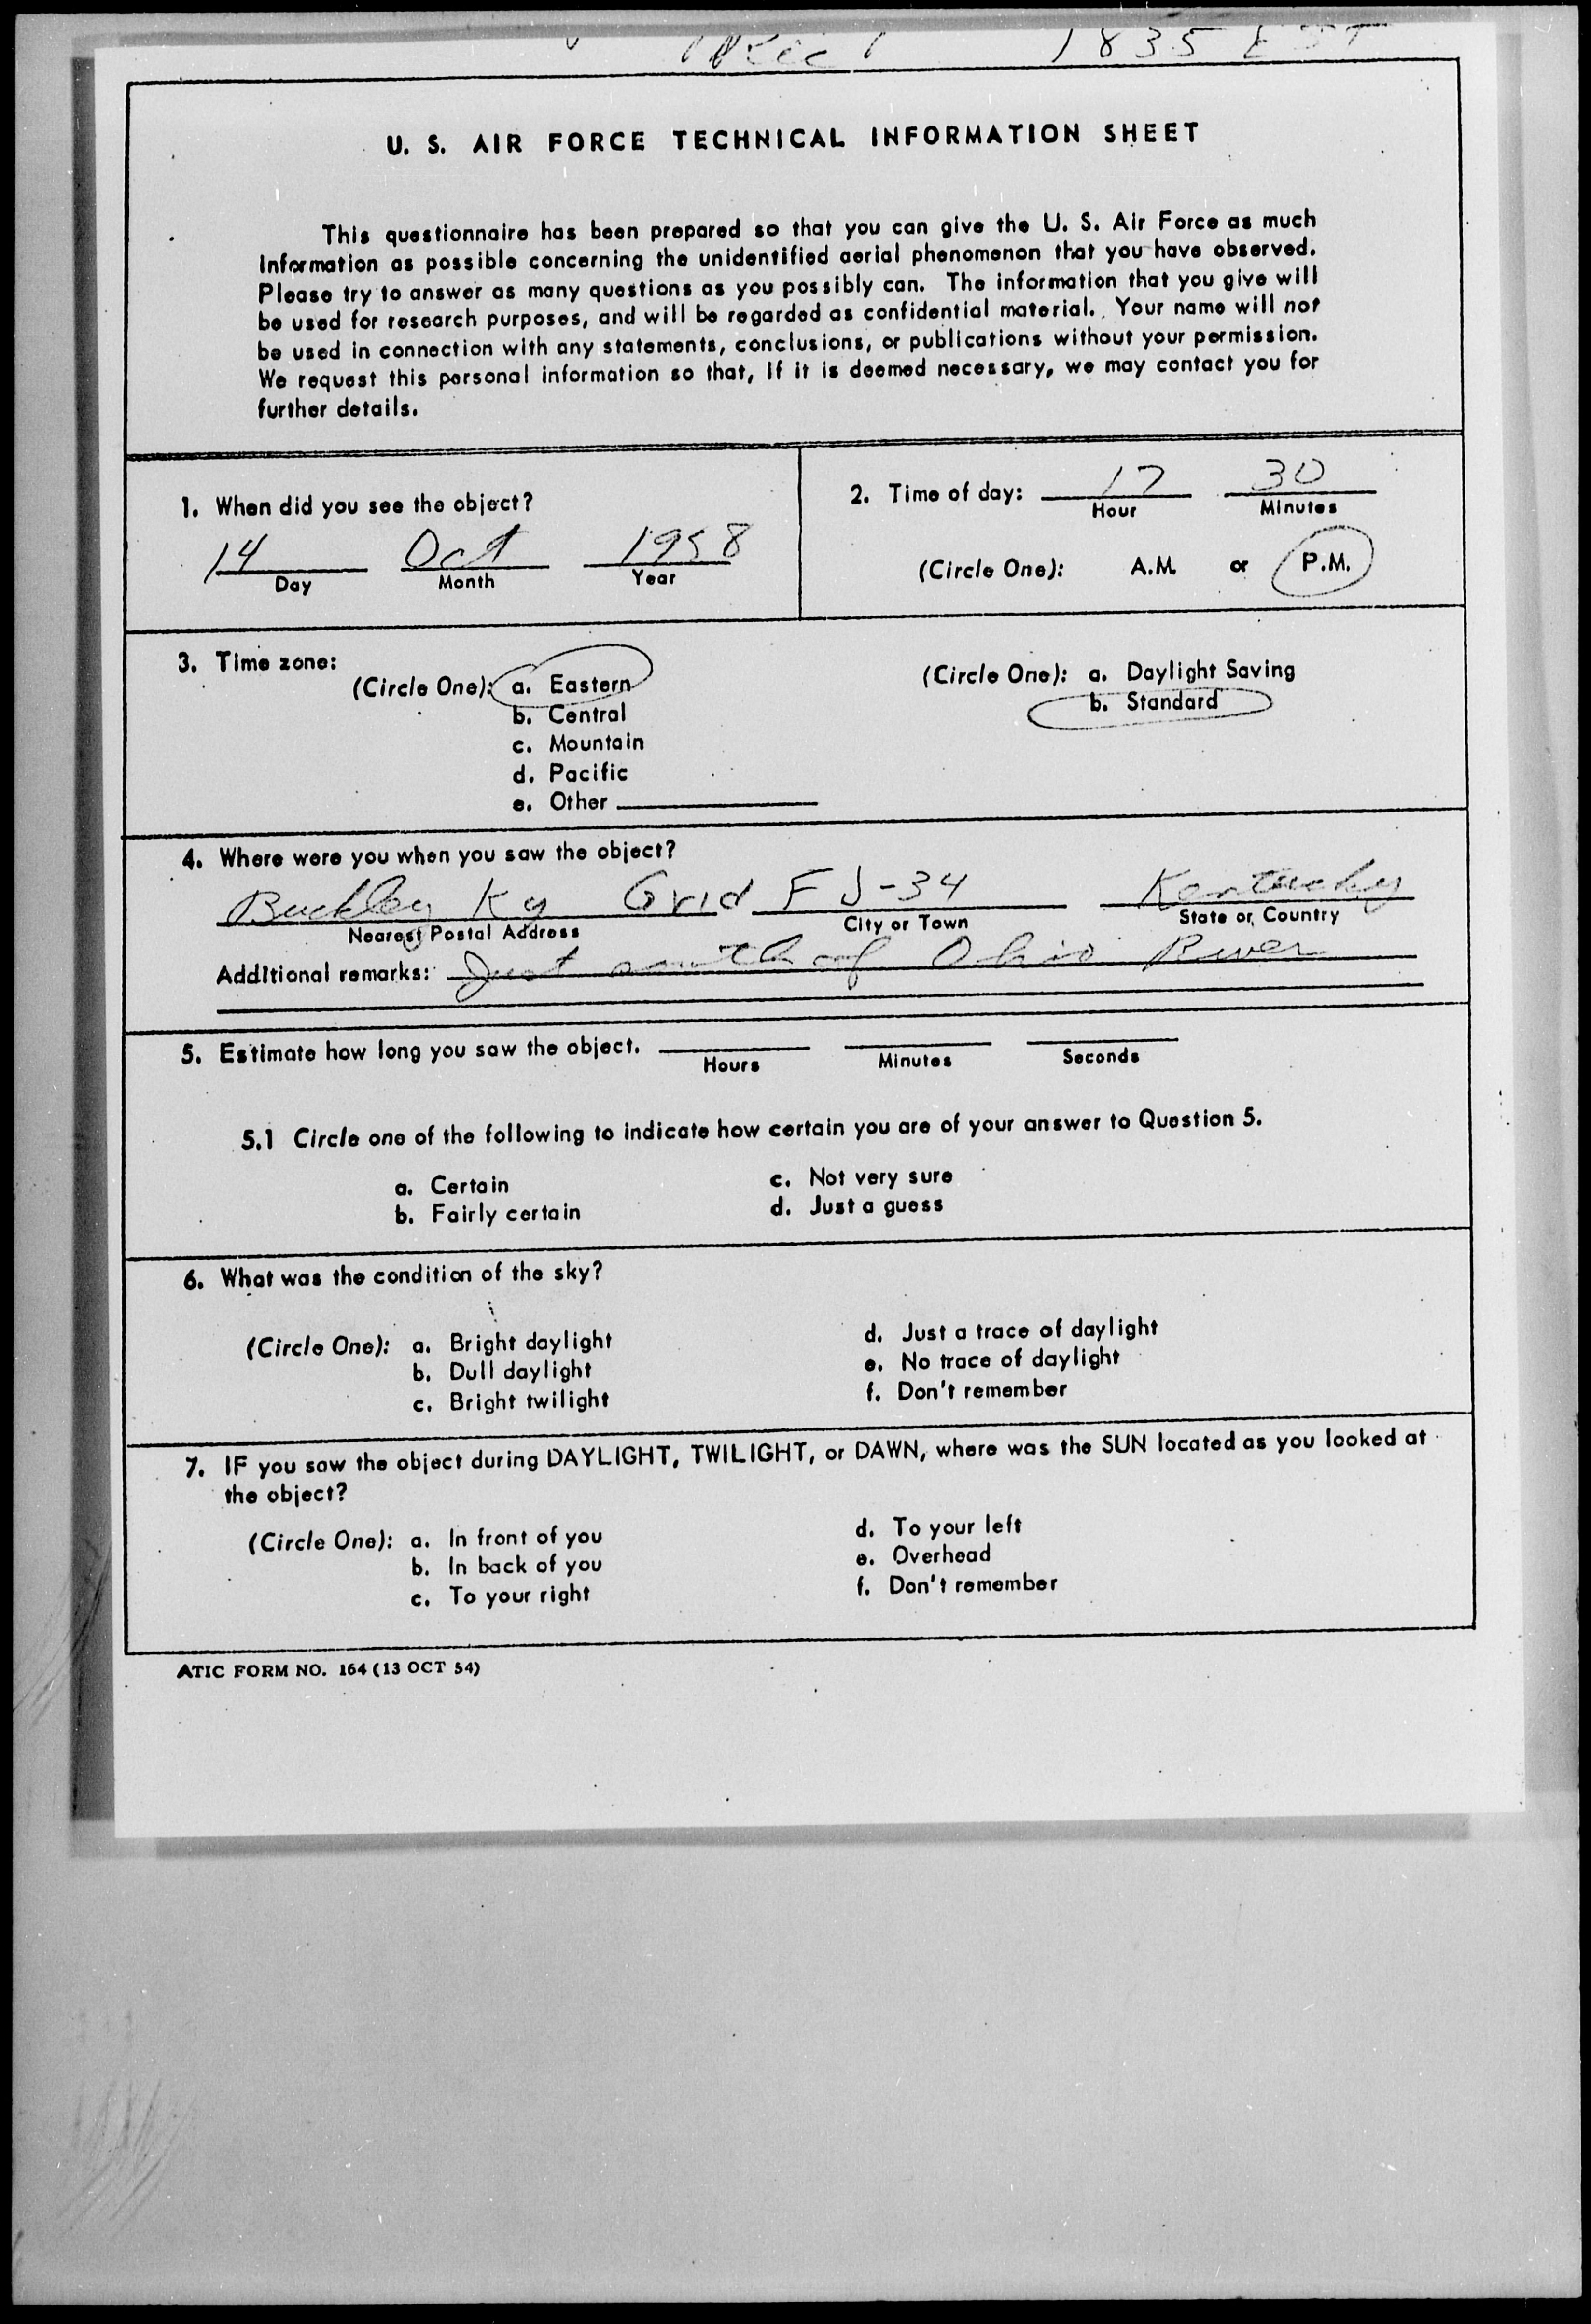 1835 EST
U. S. AIR FORCE TECHNICAL INFORMATION SHEET
This questionnaire has been prepared so that you can give the U. S. Air Force as much
information as possible concerning the unidentified aerial phenomenon that you have observed.
Please try to answer as many questions as you possibly can. The information that you give will
be used for research purposes, and will be regarded as confidential material. Your name will not
be used in connection with any statements, conclusions, or publications without your permission.
We request this personal information so that, if it is deemed necessary, we may contact you for
further details.
1. When did you see the object?
14 Oct 1958
Day Month Year
2. Time of day: 17 30
Hour Minutes
(Circle One): A.M. or P.M.
3. Time zone:
(Circle One): a. Eastern
b. Central
c. Mountain
d. Pacific
e. Other
(Circle One): a. Daylight Saving
b. Standard
4. Where were you when you saw the object?
Buckley Ky Grid FJ-34 Kentucky
Nearest Postal Address City or Town State or Country
Additional remarks: Just south of Ohio River
5. Estimate how long you saw the object.
Hours Minutes Seconds
5.1 Circle one of the following to indicate how certain you are of your answer to Question 5.
a. Certain c. Not very sure
b. Fairly certain d. Just a guess
6. What was the condition of the sky?
(Circle One): a. Bright daylight d. Just a trace of daylight
b. Dull daylight e. No trace of daylight
c. Bright twilight f. Don't remember
7. IF you saw the object during DAYLIGHT, TWILIGHT, or DAWN, where was the SUN located as you looked at
the object?
(Circle One): a. In front of you d. To your left
b. In back of you e. Overhead
c. To your right f. Don't remember
ATIC FORM NO. 164 (13 OCT 54)